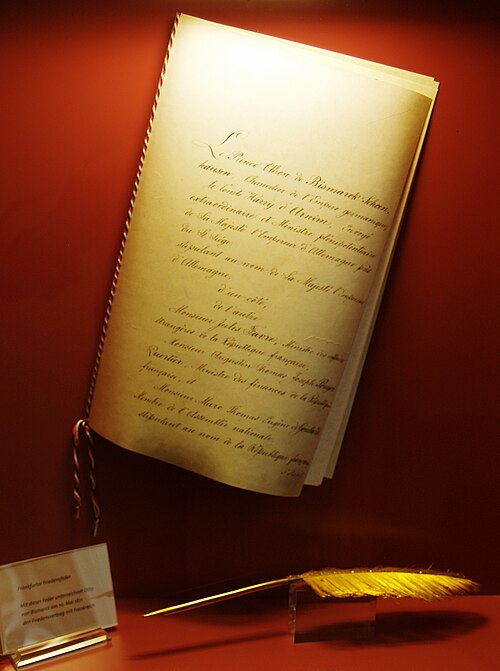 Le Prince Othon de Bismarck-Schoen-
hausen Chancelier de l'Empire germanique,
le Comte Harry d'Arnim, Envoyé
extraordinaire et Ministre plénipotentiaire
de Sa Majesté l'Empereur d'Allemagne près
du St Siège,
stipulant au nom de Sa Majesté l'Empereur
d'Allemagne,
d'un côté,
de l'autre
Monsieur Jules Favre, Ministre des affaires
étrangères de la République française,
Monsieur Augustin Thomas Joseph Pouyer-
Quertier, Ministre des finances de la République
française, et
Monsieur Marc Thomas Eugène de Goulard,
Membre de l'Assemblée nationale,
stipulant au nom de la République française
Frankfurter Friedensfeder
Mit dieser Feder unterzeichnet Otto
von Bismarck am 10. Mai 1871
den Friedensvertrag mit Frankreich.